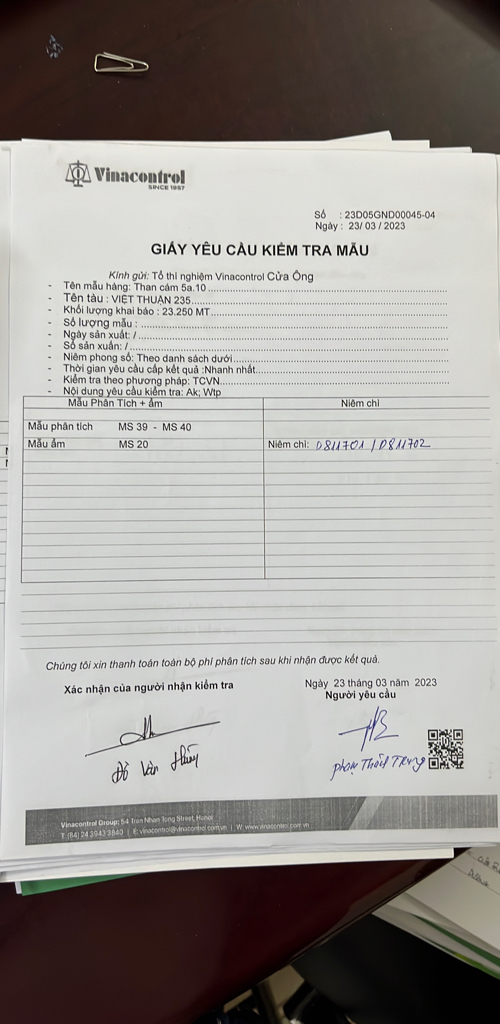 Vinacontrol
SINCE 1957
Số : 23D05GND00045-04
Ngày : 23/ 03 / 2023
GIẤY YÊU CẦU KIỂM TRA MẪU
Kính gửi: Tổ thí nghiệm Vinacontrol Cửa Ông
- Tên mẫu hàng: Than cám 5a.10
- Tên tàu : VIỆT THUẬN 235
- Khối lượng khai báo : 23.250 MT
- Số lượng mẫu :
- Ngày sản xuất: /
- Số sản xuất: /
- Niêm phong số: Theo danh sách dưới
- Thời gian yêu cầu cấp kết quả :Nhanh nhất
- Kiểm tra theo phương pháp: TCVN
- Nội dung yêu cầu kiểm tra: Ak; Wtp
Mẫu Phân Tích + ẩm Niêm chì
Mẫu phân tích MS 39 - MS 40
Mẫu ẩm MS 20 Niêm chì: D811701 / D811702
Chúng tôi xin thanh toán toàn bộ phí phân tích sau khi nhận được kết quả.
Ngày 23 tháng 03 năm 2023
Xác nhận của người nhận kiểm tra Người yêu cầu
Đỗ Văn Phạm Thành Trung
Vinacontrol Group: 54 Tran Nhan Tong Street, Hanoi
T: (84) 24 3943 3840 | E: vinacontrol@vinacontrol.com.vn | W: www.vinacontrol.com.vn